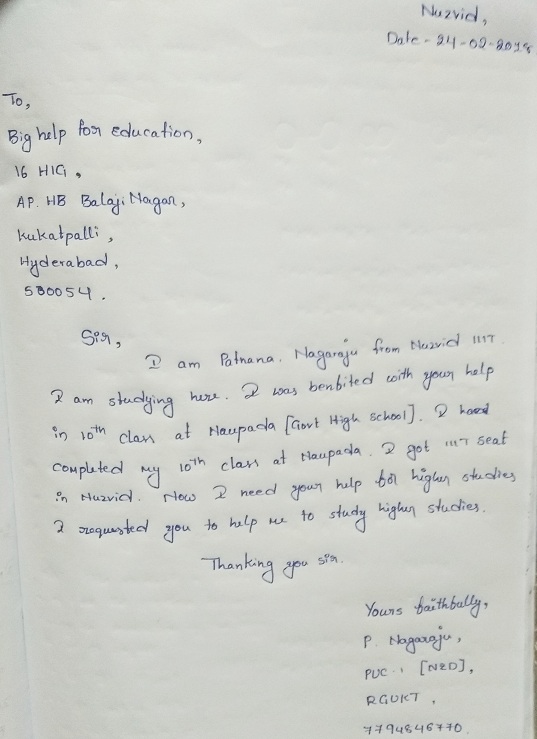 Nuzvid,
Date - 24-02-2018
To,
Big help for education,
16 HIG,
AP. HB Balaji Nagar,
Kukatpalli,
Hyderabad,
500054.
Sir,
I am Potnana. Nagaraju from Nuzvid IIIT.
I am studying here. I was benfited with your help
in 10th class at Naupada [Govt High School]. I haad
completed my 10th class at Naupada. I got IIIT seat
in Nuzvid. Now I need your help for higher studies
I requested you to help me to study higher studies.
Thanking you sir.
Yours faithfully,
P. Nagaraju,
PUC-1 [NZD],
RGUKT,
7794846770.